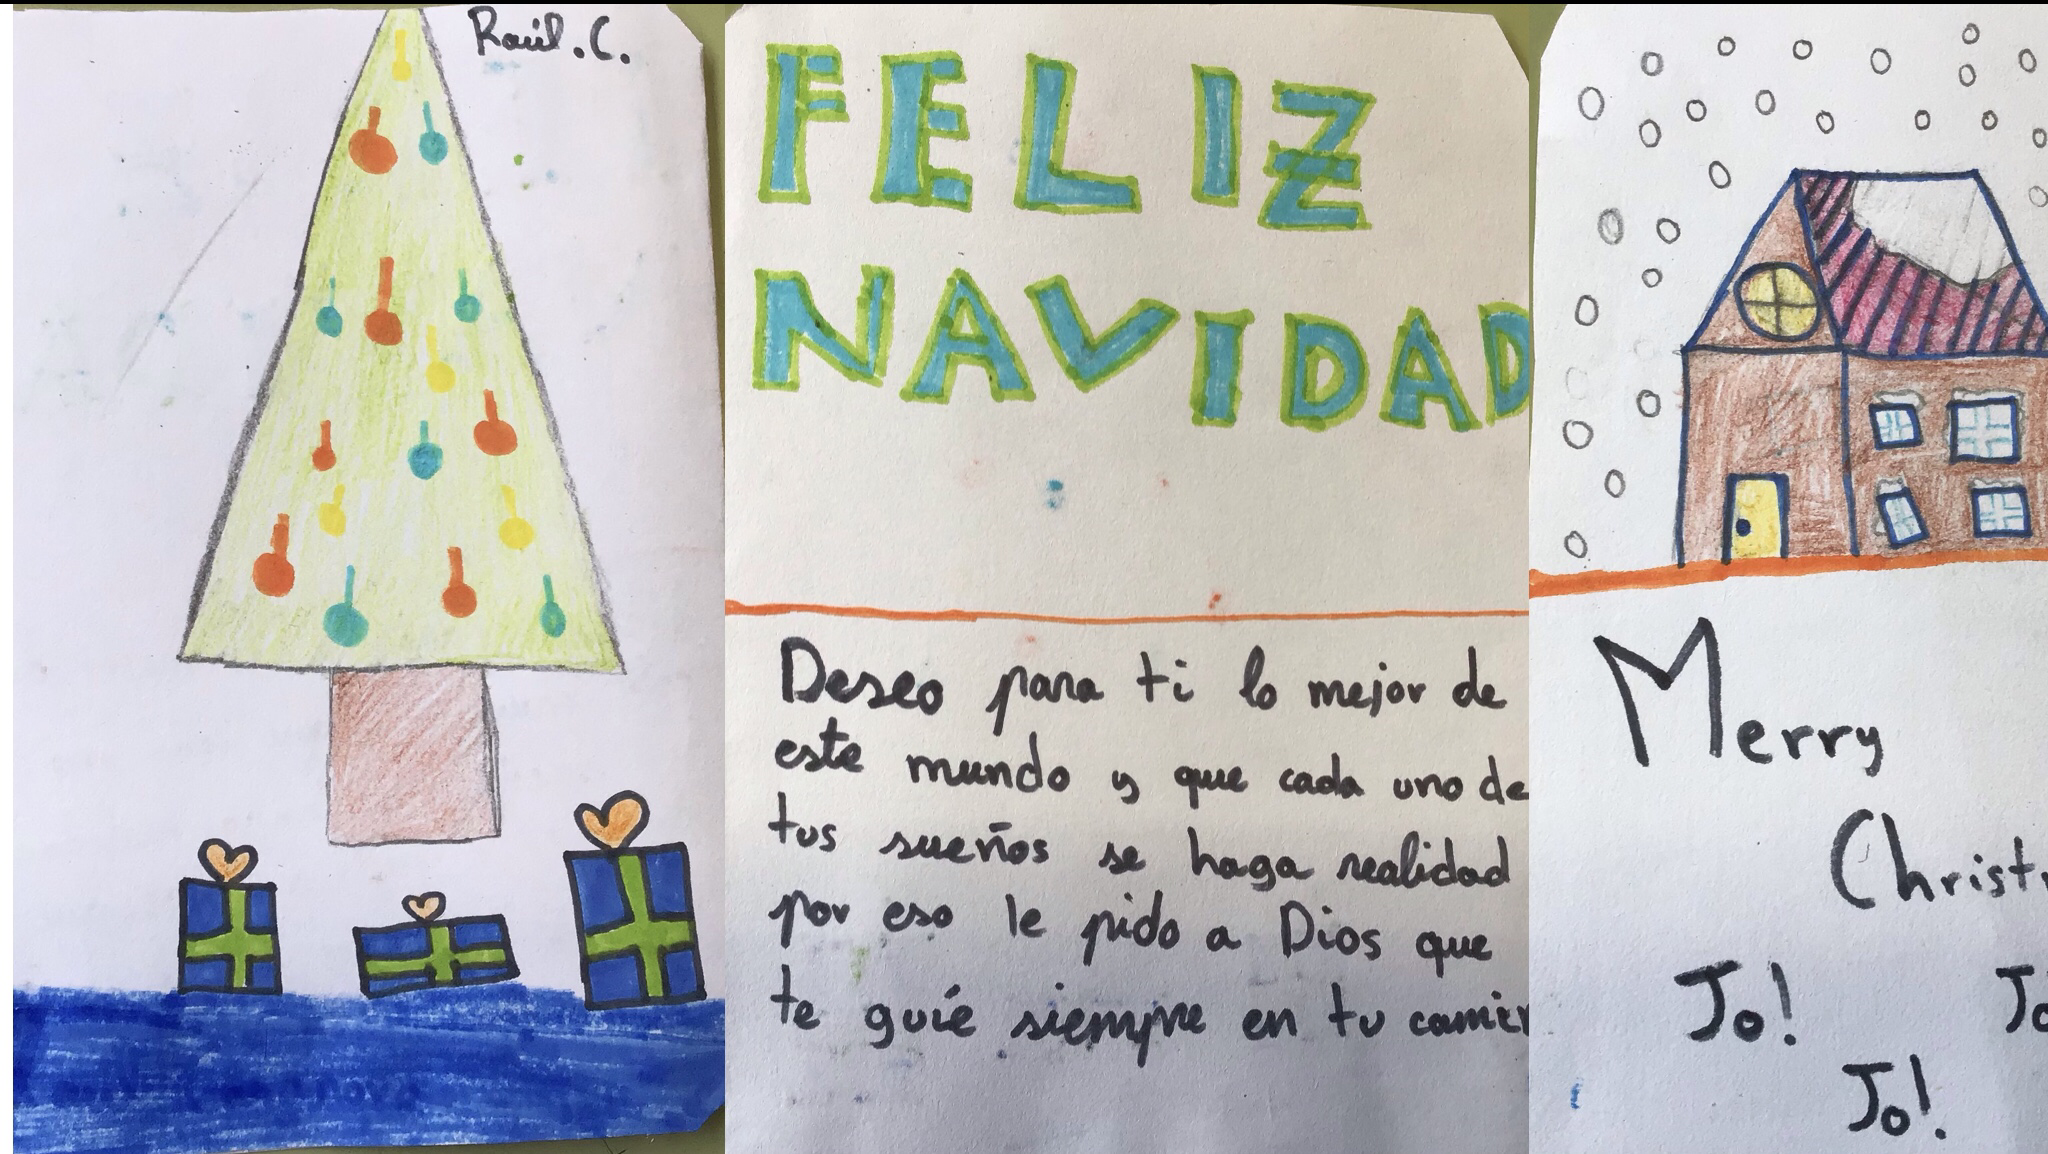 Raúl.C.
FELIZ
NAVIDAD
Deseo para ti lo mejor de
este mundo y que cada uno de
tus sueños se haga realidad
por eso le pido a Dios que
te guíe siempre en tu
Merry
Jo!
Jo!